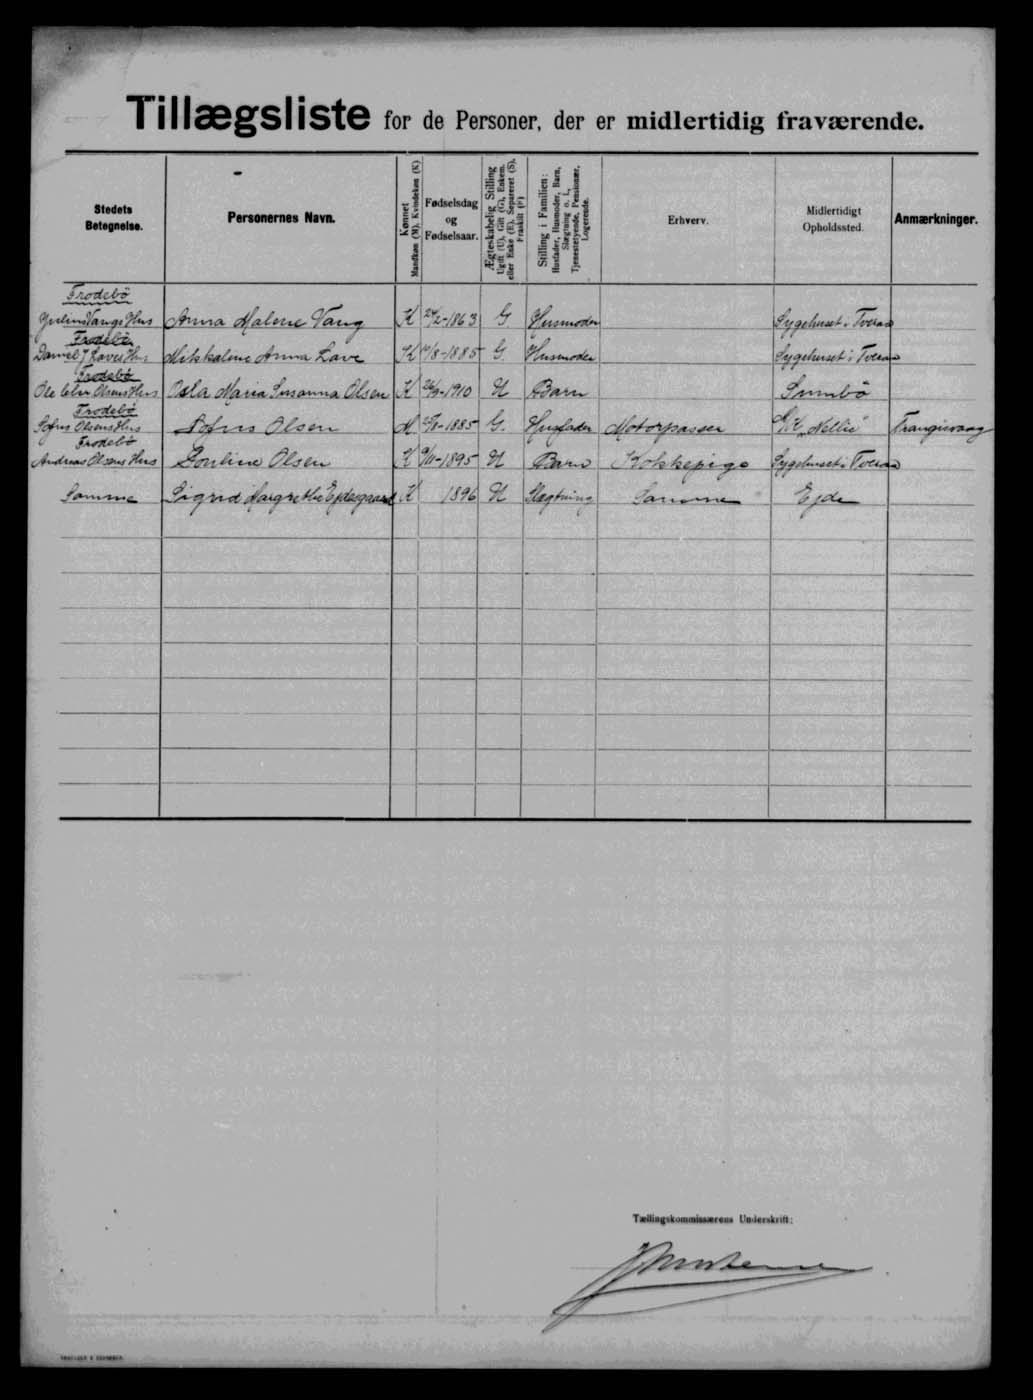 Tillægsliste for de Personer, der er midlertidig fraværende.
Stedets Betegnelse.
Personernes Navn.
Kønnet Mandkøn (M), Kvindekøn (K)
Fødselsdag og Fødselsaar.
Ægteskabelig Stilling Ugift (U), Gift (G), Enkem. eller Enke (E), Separeret (S), Fraskilt (F)
Stilling i Familien: Husfader, Husmoder, Barn, Slægtning o. l., Tjenestetyende, Pensionær, Logerende.
Erhverv.
Midlertidigt Opholdssted.
Anmærkninger.
Frodebö
Julius Vangs Hus Anna Malene Vang K 2-1863 G Husmoder Sygehuset i Tveraa
Frodebö
Daniel J Laves Hus Mikkaline Anna Lave K /8-1885 G. Husmoder Sygehuset i Tveraa
Frodebö
Ole Olsens Hus Osla Maria Susanna Olsen K 26/9-1910 U Barn Sumbö
Frodebö
Sofus Olsens Hus Sofus Olsen M /8-1885 G. Husfader Motorpasser "Nellie" Trangisvaag
Frodebö
Andreas Olsens Hus Olsen K /11-1895 U Barn Kokkepige Sygehuset i Tveraa
Samme Sigrid Margrethe Ejdesgaard K 1896 U Slægtning Samme Ejde
Tællingskommissærens Underskrift: